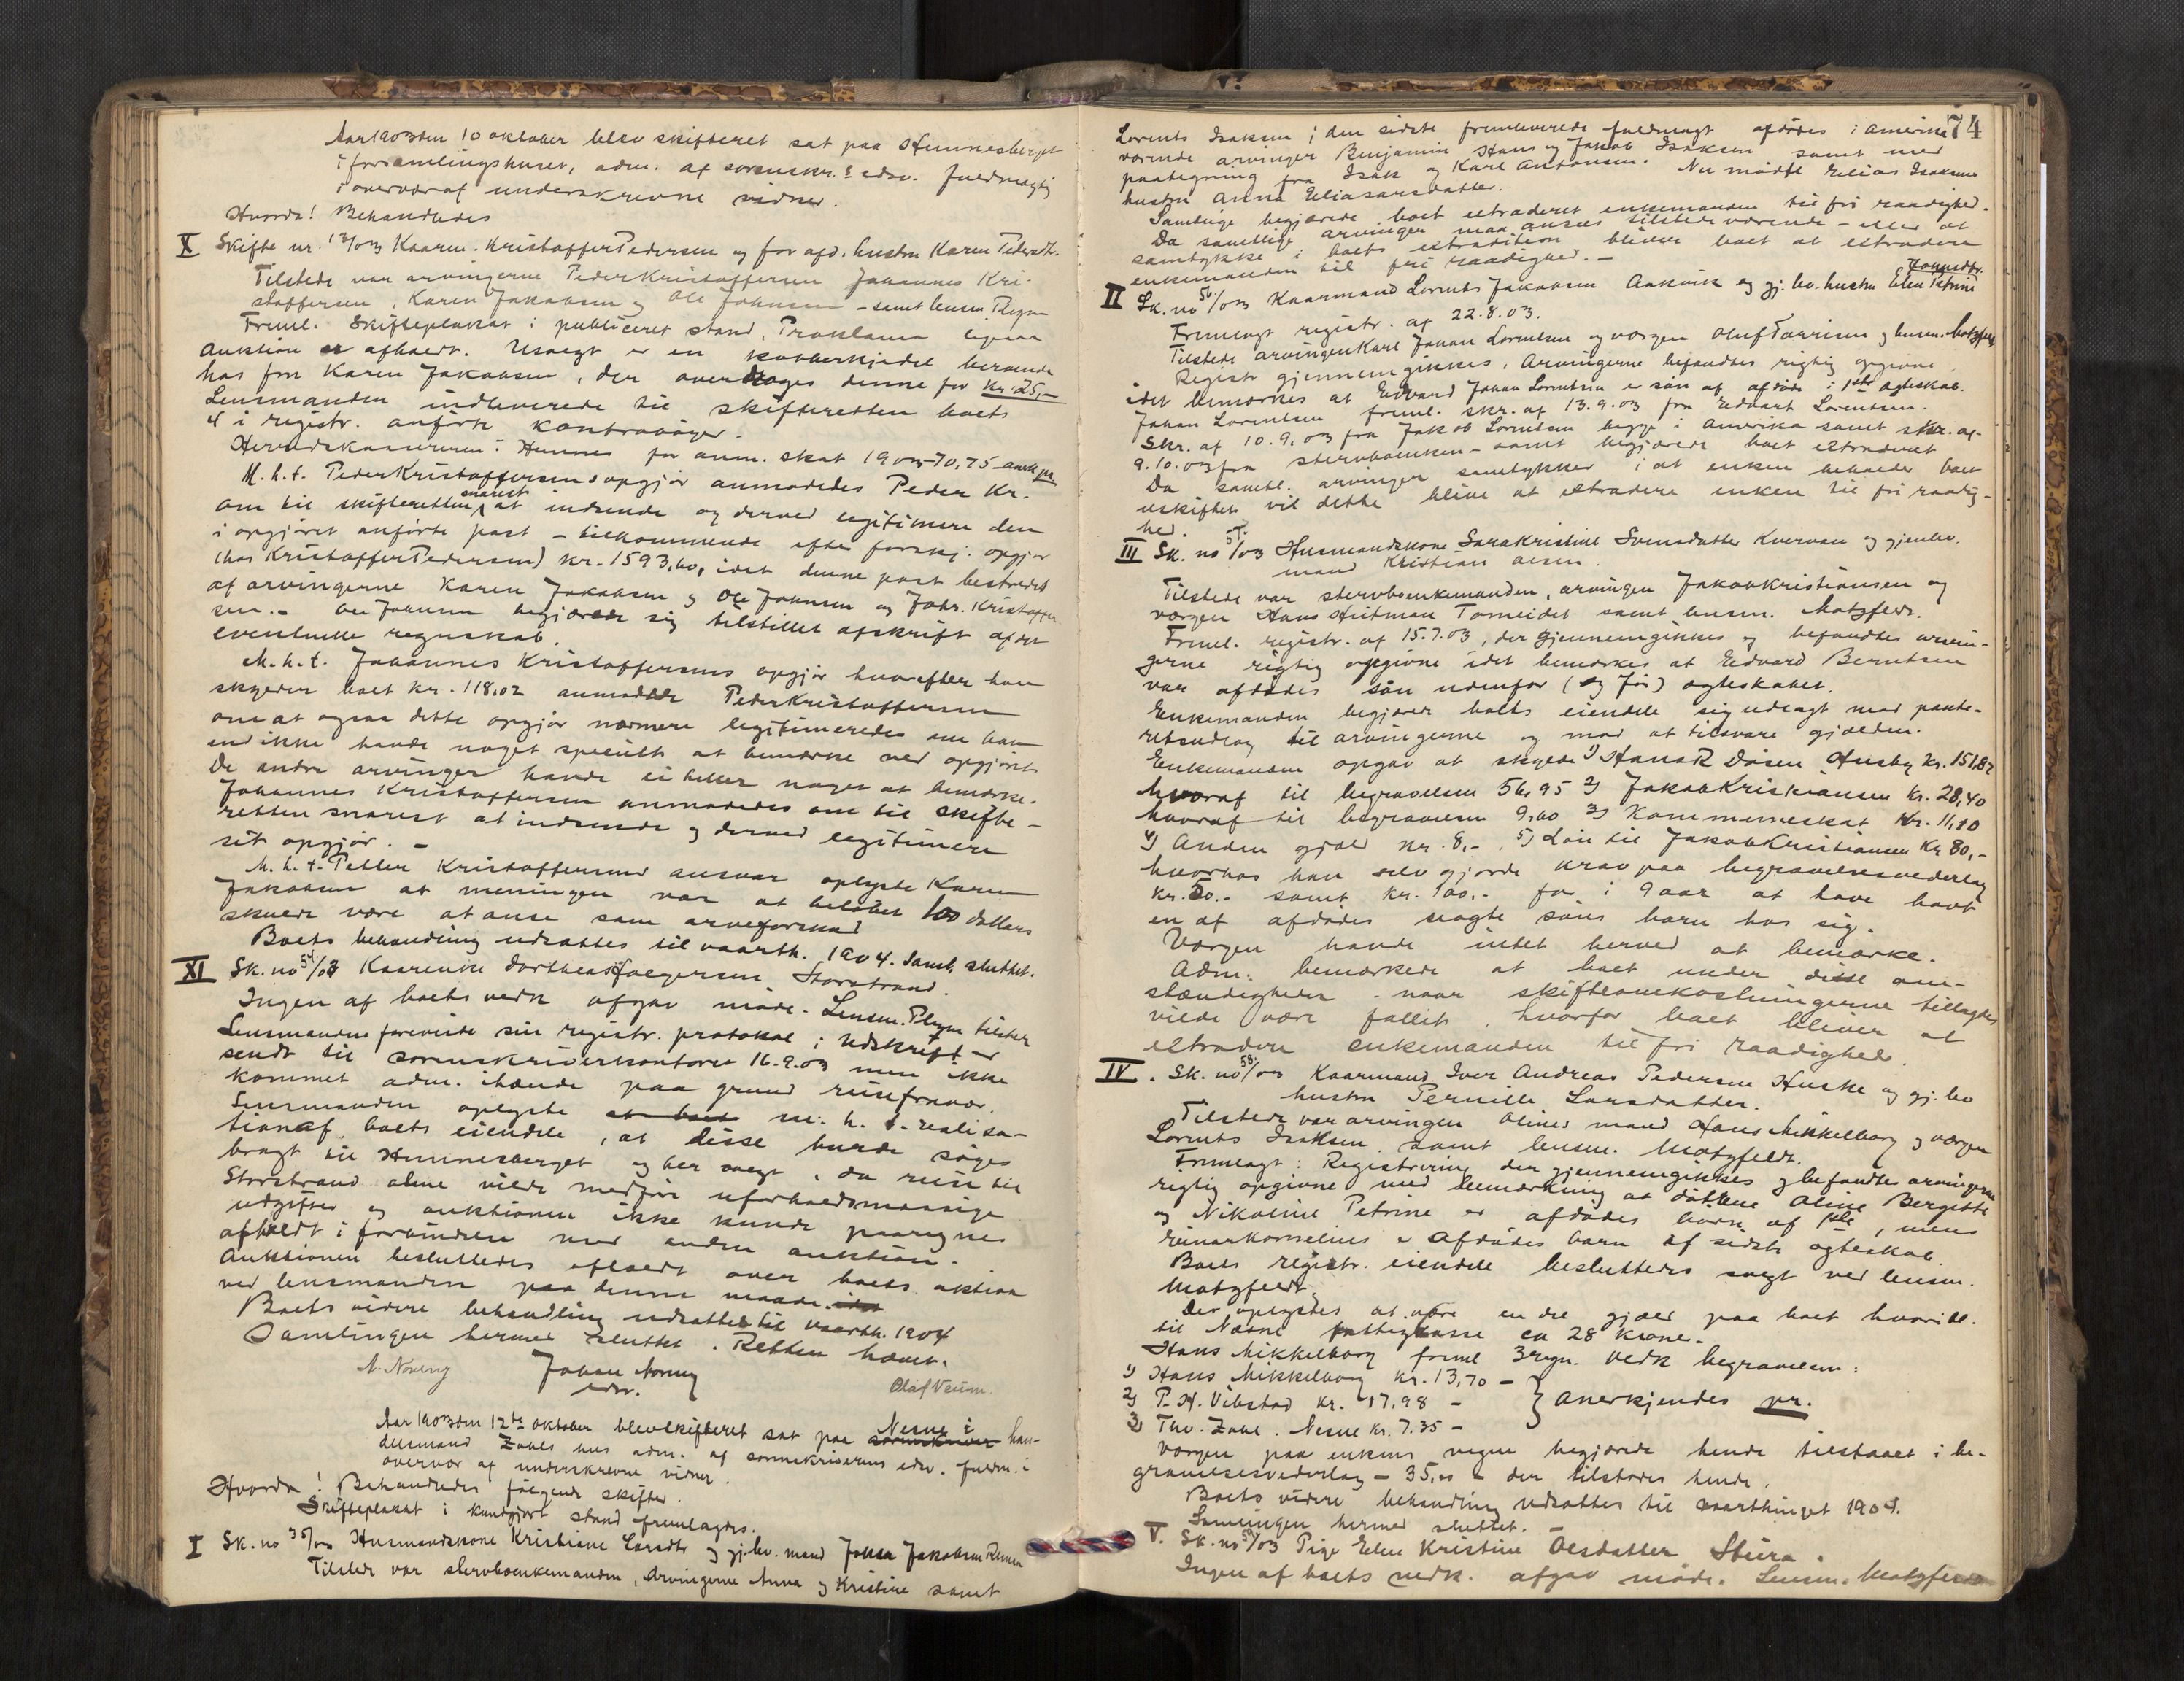 Aar 1903 den 10 oktober blev skifteret sat paa Hemnesberget
i forsamlingshuset, adm. af sorenskr.s edsv. fuldmægtig
i overvær af underskrevne vidner.
Hvorda! Behandledes
X Skifte nr. 12/03 Kaarm. Kristoffer Pedersen og før afd. hustru Karen Pedersdtr.
Tilstede var arvingerne Peder Kristoffersen Johannes Kri-
stoffersen, Karen Jakobsen og Ole Johnsen – samt lensm. Plejm
Freml. Skifteplakat i publiceret stand. Proklama ligesaa
Auktion er afholdt. Usolgt er en kobberkjedel beroende
hos fru Karen Jakobsen, der overdrages denne for kr. 25,–
Lensmanden indleverede til skifteretten boets
4 i registr. anførte kontrabøger.
Herredskassereren i Hemnes for anm. skat 1903 – 70,75 – anerk. pr.
M.h.t. Peder Kristoffersens opgjør anmodedes Peder Kr.
om til skifteretten snarest at indsende og derved legitimere den
i opgjøret anførte post – tilkommende efter forskj. opgjør
(hos Kristoffer Pedersen) kr. 1593,60, idet denne post bestredes
af arvingerne Karen Jakobsen og Ole Johnsen og Johs. Kristoffer-
sen. – Ole Johnsen begjærede sig tilstillet afskrift af det
eventuelle regnskab.
M.h.t. Johannes Kristoffersens opgjør hvorefter han
skyder boet kr. 118,02 anmodede Peder Kristoffersen
om at ogsaa dette opgjør nærmere legitimeredes om han
end ikke havde noget specielt at bemærke ved opgjøret
De andre arvinger havde ei heller noget at bemærke.
Johannes Kristoffersen anmodedes om til skifte-
retten snarest at indsende og derved legitimere
sit opgjør. –
M.h.t. Petter Kristoffersens ansvar oplyste Karen
Jakobsen at meningen var at beløbet 100 dollars
skulde være at anse som arveforskud
Boets behandling udsattes til vaarth. 1904. Saml. sluttet.
XI Sk. no 54/03 Kaarenke Dorthea Holgersen, Storstrand.
Ingen af boets vedk. afgav møde. Lensm. Plejm tilstede
Lensmanden foreviste sin registr. protokol; Udskrift er
sendt til sorenskriverkontoret 16.9.03 men ikke
kommet adm. ihænde paa grund reisefravær.
Lensmanden oplyste at boet m. h. t. realisa-
tion af boets eiendele, at disse burde søges
bragt til Hemnesberget og her solgt, da reise til
Storstrand alene vilde medføre uforholdsmæssige
udgifter og auktionen ikke kunde paaregnes
afholdt i forbindelse med anden auktion.
Auktionen besluttedes afholdt over boets aktiva
ved lensmanden paa denne maade.
Boets videre behandling udsattes til vaarth. 1904
Samlingen hermed sluttet. Retten hævet.
N. Noreng Johan Moring Olaf Veum.
edsv.
Aar 1903 den 12te oktober blev skifteret sat paa Nesne i han-
delsmand Zahls hus adm. af sorenskriverens edsv. fuldm. i
overvær af underskrevne vidner.
Hvorda! Behandledes følgende skifter.
Skifteplakat i kundgjort stand fremlagdes.
I Sk. no 35/03 Husmandskone Kristiane Larsdtr og gj.lev. mand Johan Jakobsen
Tilstede var stervboenkemanden, Arvingerne Anna og Kristine samt
74
Lorents Isaksen; den sidste fremleverede fuldmagt afdødes i Amerika
værende arvinger Benjamin Hans og Jakob Isaksen samt med
paategning fra Isak og Karl Antonsen. Nu mødte Elias Isaksens
hustru Anna Eliasarsdatter.
Samtlige begjærede boet extraderet enkemanden til fri raadighed.
Da samtlige arvinger maa ansees tilstedeværende – eller at
samtykke i boets extradition bliver boet at extradere
enkemanden til fri raadighed. –
II Sk. no 56/03 Kaarmand Lornts Jakobsen Aakvik og gj. lev. hustru Elen Petrine Johnsdtr.
Fremlagt registr. af 22.8.03.
Tilstede arvingen Karl Johan Lorentsen og værgen Oluf Taarisen og lensm. Motzfeldt
Registr gjennemgikkes. Arvingerne befandtes rigtig opgivne
idet bemærkes at Edvard Johan Lorentsen er søn af afdøde i 1ste ægteskab.
Johan Lorentsen freml. skr. af 13.9.03 fra Edvart Lorentsen.
Skr. af 10.9.03 fra Jakob Lorentsen begge i Amerika samt skr. af
9.10.03 fra stervboenken – samt begjærede boet extraderet
Da samtl. arvinger samtykker i at enken beholder boet
uskiftet vil dette blive at extradere enken til fri raadig-
hed.
III Sk. no 57/03 Husmandskone Sara Kristine Svensdatter Kvervan og gjenlev.
mand Kristian Olsen.
Tilstede var stervboenkemanden, arvingen Jakob Kristiansen og
værgen Hans Hutman Tomeidet samt lensm. Motzfeldt.
Freml. registr. af 15.7.03, der gjennemgikkes og befandtes arvin-
gerne rigtig opgivne idet bemærkes at Edvard Berntsen
var afdødes søn udenfor (og før) ægteskabet.
Enkemanden begjærer boets eiendele sig udlagt mod pante-
retsudlæg til arvingerne og mod at tilsvare gjælden.
Enkemanden opgav at skylde 1) Hans R Døsen Husby kr. 151,82
hvoraf til begravelsen 56,95 2) Jakob Kristiansen kr. 28,40
hvoraf til begravelsen 9,60 3) Kommuneskat kr. 11,10
4) Anden gjæld kr. 8,–. 5) Løn til Jakob Kristiansen Kr 80,–
hvorhos han selv gjorde krav paa begravelsesvederlag
kr. 20.– samt kr. 100.– for i 9 aar at have havt
en af afdødes uægte søns barn hos sig.
Værgen havde intet herved at bemærke.
Adm. bemærkede at boet under disse om-
stændigheder – naar skifteomkostningerne tillagdes
vilde være fallit, hvorfor boet bliver at
extradere enkemanden til fri raadighed.
IV. Sk. no 58/03 Kaarmand Iver Andreas Pedersen Huske og gj. lev
hustru Pernille Larsdatter.
Tilstede var arvingen Olines mand Hans Mikkelborg og værgen
Lornts Isaksen samt lensm. Motzfeldt.
Fremlagt: Registrering der gjennemgikkes og befandtes arvingerne
rigtig opgivne med bemærkning at døttrene Oline Bergitte
og Nikoline Petrine er afdødes børn af 1ste, mens
Einar Kornelius er afdødes barn af sidste ægteskab.
Boets registr. eiendele besluttedes solgt ved lensm.
Motzfeldt.
Der oplystes at være en del gjæld paa boet hvoribl.
til Næsne fattigkasse ca 28 krone.
Hans Mikkelborg freml 3 regn. vedk begravelsen:
1) Hans Mikkelborg kr. 13,70 –
2) P. H. Vibstad kr. 17,98 – } anerkjendes pr.
3) Thv. Zahl. Nesne kr. 7.35 –
Værgen paa enkens vegne begjærede hende tilstaaet i be-
gravelsesvederlag – 35,00 – der tilstodes hende.
Boets videre behandling udsattes til vaarthinget 1904.
Samlingen hermed sluttet.
V. Sk. no 59/03 Pige Elen Kristine Olsdatter Stura.
Ingen af boets vedk. afgav møde. Lensm. Motzfeldt